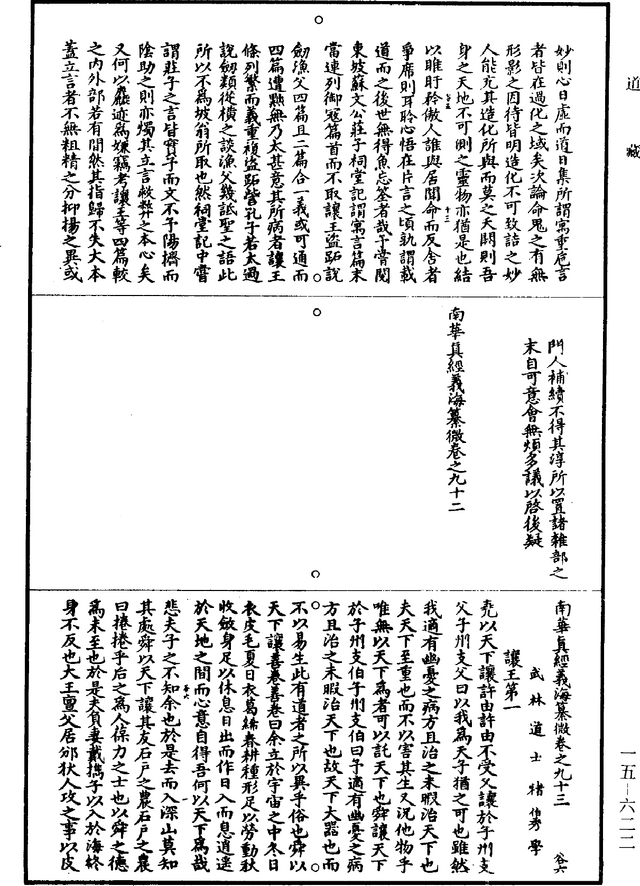 道藏
妙則心日虛而道日集所謂寓重巵言
者皆在過化之域矣次論命鬼之有無
形影之因待皆明造化不可致詰之妙
人能充其造化所與而莫之夭閼則吾
身之天地不可測之靈物亦猶是也結
以睢盱矜傲人誰與居聞命而反舍者
爭席則耳聆心悟在片言之頃孰謂載
道而之後世無得魚忘筌者哉予嘗閱
東坡蘇文公莊子祠堂記謂寓言篇末
當連列御寇篇首而不取讓王盜跖說
劒漁父四篇且二篇合一義或可通而
四篇遭黜無乃太甚意其所病者讓王
條列繁而義重複盜跖訾孔子若太過
說劒類從橫之談漁父幾詆聖之語此
所以不爲坡翁所取也然祠堂記中嘗
謂莊子之言皆實予而文不予陽擠而
陰助之則亦燭其立言救弊之本心矣
又何以麤迹爲嫌竊考讓王等四篇較
之內外部若有間然其指歸不失大本
蓋立言者不無粗精之分抑揚之異或
門人補續不得其淳所以置諸雜部之
末自可意會無煩多議以啓後疑
南華真經義海纂微卷之九十二
南華真經義海纂微卷之九十三 谷六
武林道士褚伯秀學
讓王第一
堯以天下讓許由許由不受又讓於子州支
父子州支父曰以我爲天子猶之可也雖然
我適有幽憂之病方且治之未暇治天下也
夫天下至重也而不以害其生又況他物乎
唯無以天下爲者可以託天下也舜讓天下
於子州支伯子州支伯曰予適有幽憂之病
方且治之未暇治天下也故天下大器也而
不以易生此有道者之所以異乎俗也舜以
天下讓善卷善卷曰余立於宇宙之中冬日
衣皮毛夏日衣葛絺春耕種形足以勞動秋
收斂身足以休息日出而作日入而息逍遙
於天地之間而心意自得吾何以天下爲哉
悲夫子之不知余也於是去而入深山莫知
其處舜以天下讓其友石戶之農石戶之農
曰捲捲乎后之爲人葆力之士也以舜之德
爲未至也於是夫負妻戴攜子以入於海終
身不反也大王亶父居邠狄人攻之事以皮
一五—六二二